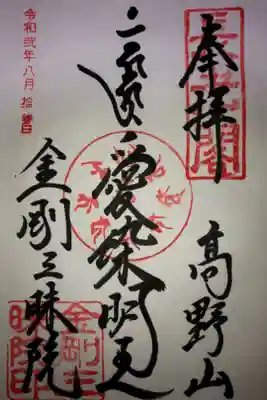 奉拝
高野山
愛染明王
金剛三昧院
令和弐年八月拾
金剛三昧院印